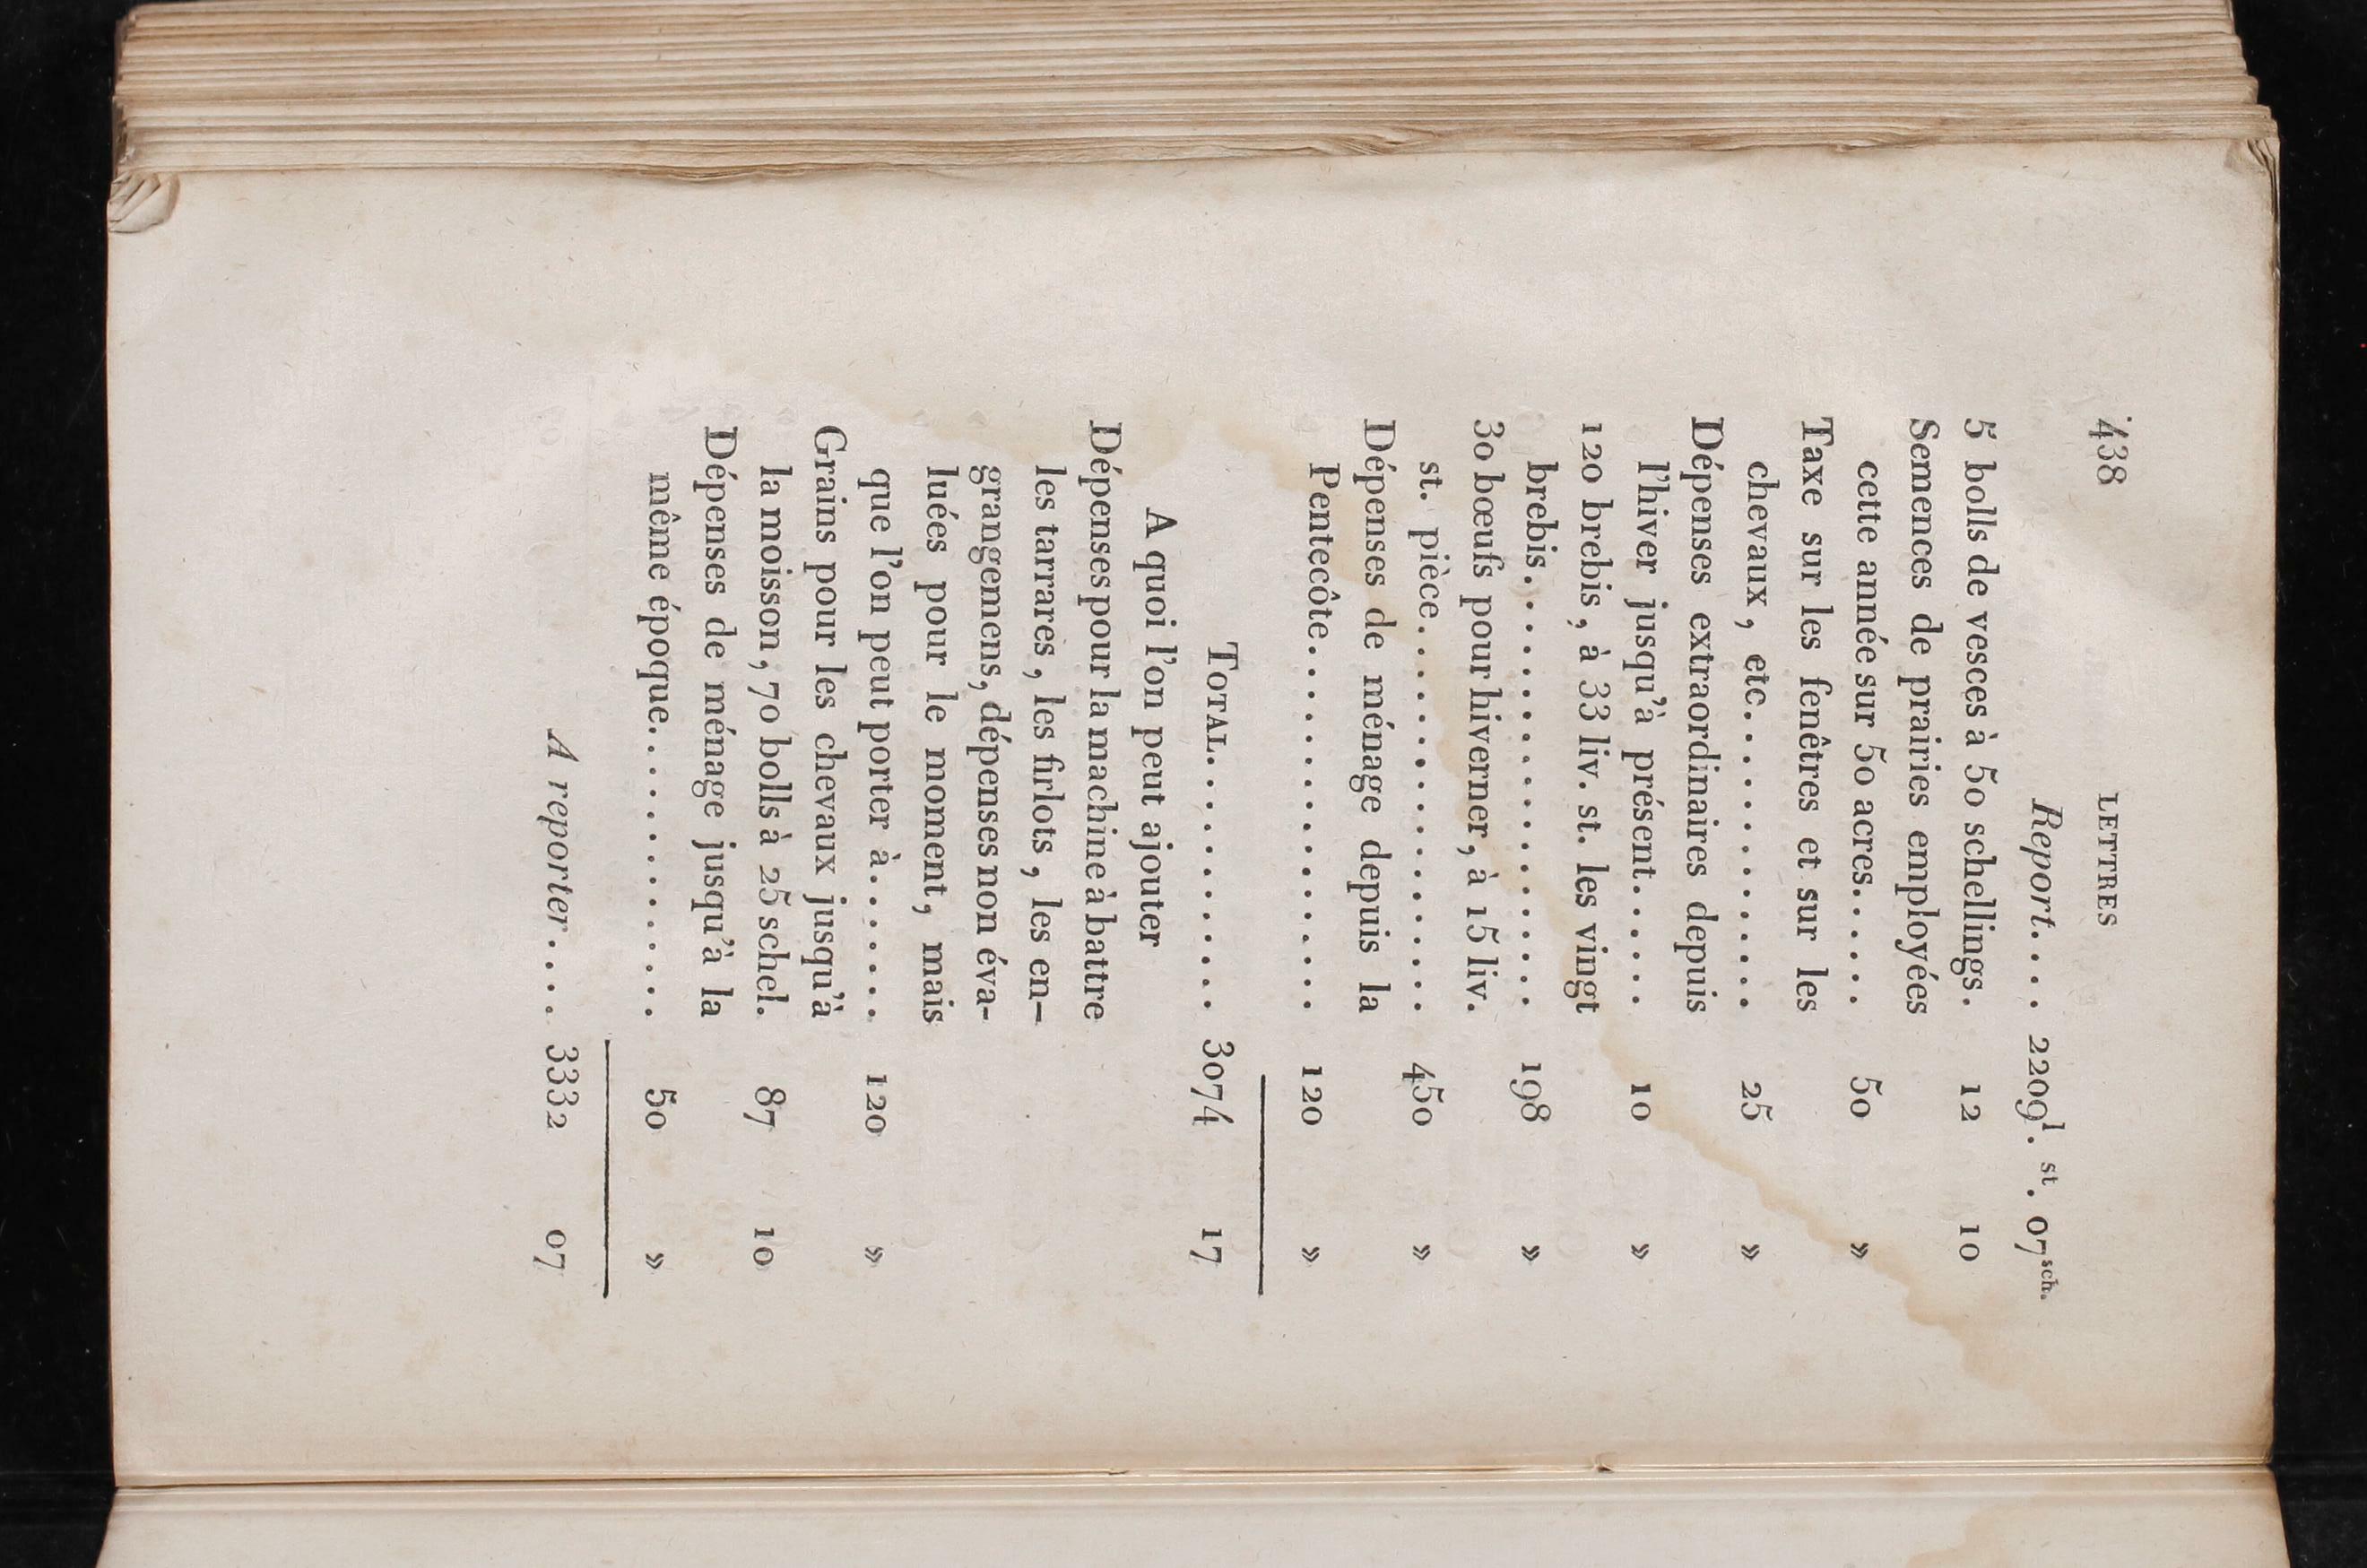 438 LETTRES
Report.... 2209l. st. 07sch.
5 bolls de vesces à 50 schellings. 12 10
Semences de prairies employées
cette année sur 50 acres..... 50 »
Taxe sur les fenêtres et sur les
chevaux, etc............ 25 »
Dépenses extraordinaires depuis
l'hiver jusqu'à présent...... 10 »
120 brebis, à 33 liv. st. les vingt
brebis................. 198 »
30 bœufs pour hiverner, à 15 liv.
st. pièce............... 450 »
Dépenses de ménage depuis la
Pentecôte.............. 120 »
TOTAL.......... 3074 17
A quoi l'on peut ajouter
Dépenses pour la machine à battre
les tarrares, les firlots, les en-
grangemens, dépenses non éva-
luées pour le moment, mais
que l'on peut porter à....... 120 »
Grains pour les chevaux jusqu'à
la moisson, 70 bolls à 25 schel. 87 10
Dépenses de ménage jusqu'à la
même époque............ 50 »
A reporter.... 3332 07